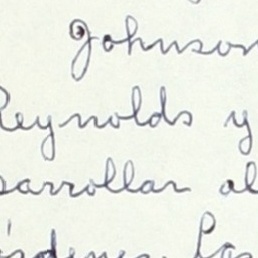 Johnson
Reynolds y
sarrollar al